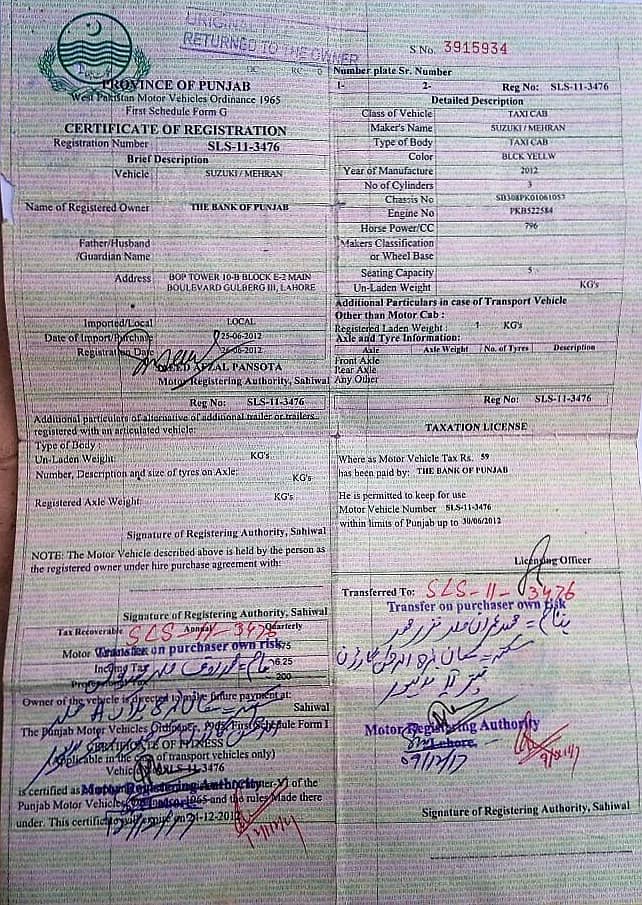 ORIGINAL FILE
RETURNED TO THE OWNER
S No. 3915934
PROVINCE OF PUNJAB
West Pakistan Motor Vehicles Ordinance 1965
First Schedule Form G
CERTIFICATE OF REGISTRATION
Registration Number SLS-11-3476
Brief Description
Vehicle SUZUKI / MEHRAN
Name of Registered Owner THE BANK OF PUNJAB
Father/Husband
/Guardian Name
Address BOP TOWER 10-B BLOCK E-2 MAIN
BOULEVARD GULBERG III, LAHORE
Imported/Local LOCAL
Date of Import/Purchase 25-06-2012
Registration Date 26-06-2012
AFZAL PANSOTA
Motor Registering Authority, Sahiwal
Number plate Sr. Number
1- 2- Reg No: SLS-11-3476
Detailed Description
Class of Vehicle TAXI CAB
Maker's Name SUZUKI / MEHRAN
Type of Body TAXI CAB
Color BLCK YELLW
Year of Manufacture 2012
No of Cylinders 3
Chassis No SB308PK01061053
Engine No PKB522584
Horse Power/CC 796
Makers Classification
or Wheel Base
Seating Capacity 5
Un-Laden Weight KG's
Additional Particulars in case of Transport Vehicle
Other than Motor Cab :
Registered Laden Weight : 1 KG's
Axle and Tyre Information:
Axle Axle Weight No. of Tyres Description
Front Axle
Rear Axle
Any Other
Reg No: SLS-11-3476
Additional particulars of alternative of additional trailer or trailers
registered with an articulated vehicle:
Type of Body :
Un-Laden Weight: KG's
Number, Description and size of tyres on Axle:
KG's
Registered Axle Weight: KG's
Signature of Registering Authority, Sahiwal
NOTE: The Motor Vehicle described above is held by the person as
the registered owner under hire purchase agreement with:
Signature of Registering Authority, Sahiwal
Tax Recoverable Annual Quarterly
SLS-11-3476
Motor
Transfer on purchaser own risk
Income Tax 6.25
200
Owner of the vehicle is directed to make future payment at:
Sahiwal
The Punjab Motor Vehicles Ordinance, First Schedule Form I
CERTIFICATE OF FITNESS
(Applicable in the case of transport vehicles only)
Vehicle SLS-11-3476
Motor Registering Authority
is certified as of the
Punjab Motor Vehicles 1965 and the rules Made there
under. This certificate will expire on
12/12/17
Reg No: SLS-11-3476
TAXATION LICENSE
Where as Motor Vehicle Tax Rs. 59
has been paid by: THE BANK OF PUNJAB
He is permitted to keep for use
Motor Vehicle Number SLS-11-3476
within limits of Punjab up to 30/06/2012
Licensing Officer
Transferred To: SLS-11-3476
Transfer on purchaser own risk
Motor Registering Authority
Lahore
09/12/17
Signature of Registering Authority, Sahiwal